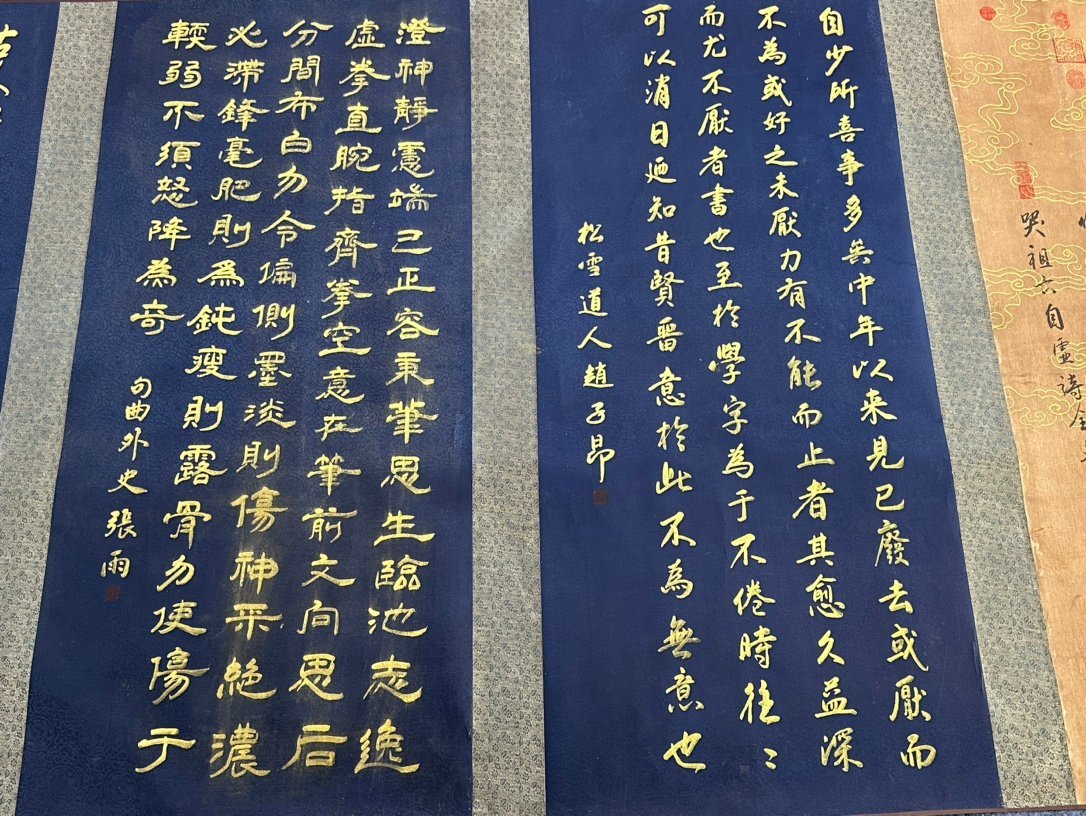 哭祖六自虛詩
自少所喜事多矣中年以来見已廢去或厭而
不為或好之未厭力有不能而止者其愈久益深
而尤不厭者書也至於學字為于不倦時往〻
可以消日廼知昔賢留意於此不為無意也
松雪道人趙子昂
澄神靜慮端己正容秉筆思生臨池志逸
虛拳直腕指齊拳空意在筆前文向思后
分間布白勿令偏側墨淡則傷神采絕濃
必滯鋒毫肥則為鈍瘦則露骨勿使傷于
輭弱不須怒降為奇
句曲外史張雨